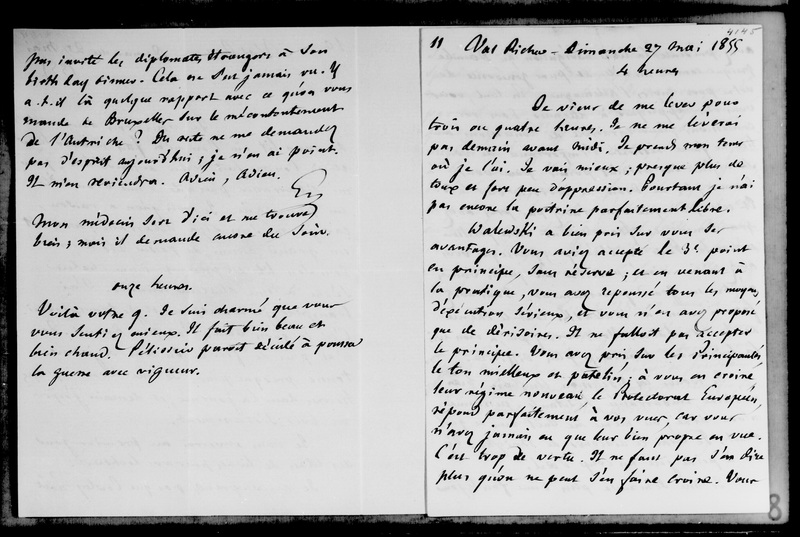 pas invité les diplomates étrangers à son
birth day dinner. Cela ne s'est jamais vu. Y
a-t-il là quelque rapport avec ce qu'on vous
mande de Bruxelles sur le mécontentement
de l'Autriche ? Du reste ne me demandez
pas d'esprit aujourd'hui ; je n'en ai point.
Il m'en reviendra. Adieu, Adieu.
G
Mon médecin sort d'ici et me trouve
bien ; mais il demande encore du soin.
onze heures.
Voilà votre 9. Je suis charmé que vous
vous sentiez mieux. Il fait bien beau et
bien chaud. Pélissier paroit décidé à pousser
la guerre avec vigueur.
4145
11 Val Richer - Dimanche 27 Mai 1855
4 heures
Je viens de me lever pour
trois ou quatre heures. Je ne me lèverai
pas demain avant midi. Je prends mon tems
où je l'ai. Je vais mieux ; presque plus de
toux et fort peu d'oppression. Pourtant je n'ai
pas encore la poitrine parfaitement libre.
Walewski a bien pris sur vous ses
avantages. Vous aviez accepté le 3e point
en principe, sans réserve ; et en venant à
la pratique, vous avez repoussé tous les moyens
d'exécution sérieux, et vous n'en avez proposé
que de dérisoires. Il ne falloit pas accepter
le principe. Vous avez pris sur les Principautés
le ton mielleux et patelin ; à vous en croire
leur régime nouveau, le Protectorat Européen,
répond parfaitement à vos vues, car vous
n'avez jamais eu que leur bien propre en vue.
C'est trop de vertu. Il ne faut pas s'en dire
plus qu'on ne peut s'en faire croire. Vous
8